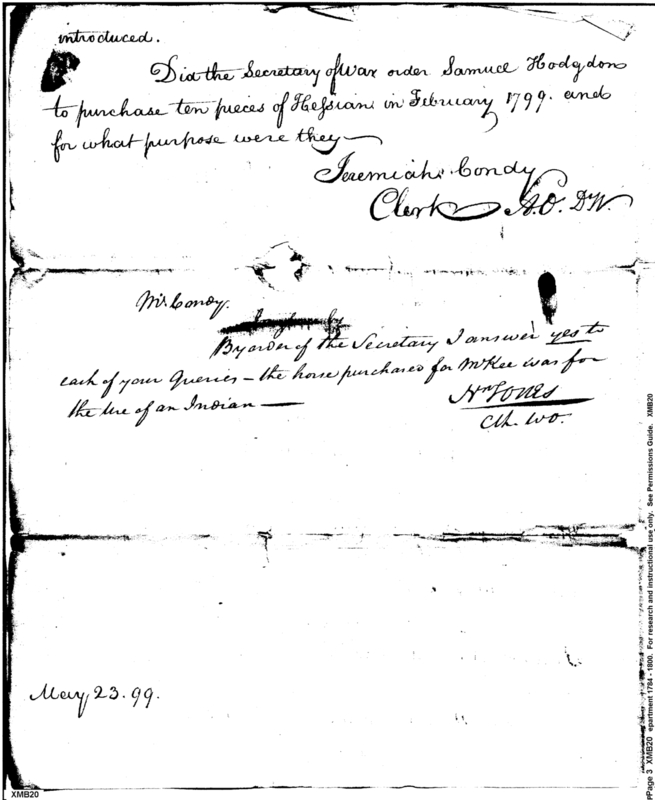 introduced.
Did the Secretary of War order Samuel Hodgdon
to purchase ten pieces of Hessians in February 1799. and
for what purpose were they—
Jeremiah Condy
Clerk A.O. D W.
Mr. Condy.
By order of the Secretary I answer yes to
each of your Queries – the horse purchased for McKee was for
the Use of an Indian —
Nn Jones
Ch. WO.
May 23. 99.
XMB20
Page 3 XMB20 epartment 1784 - 1800. For research and instructional use only. See Permissions Guide. XMB20